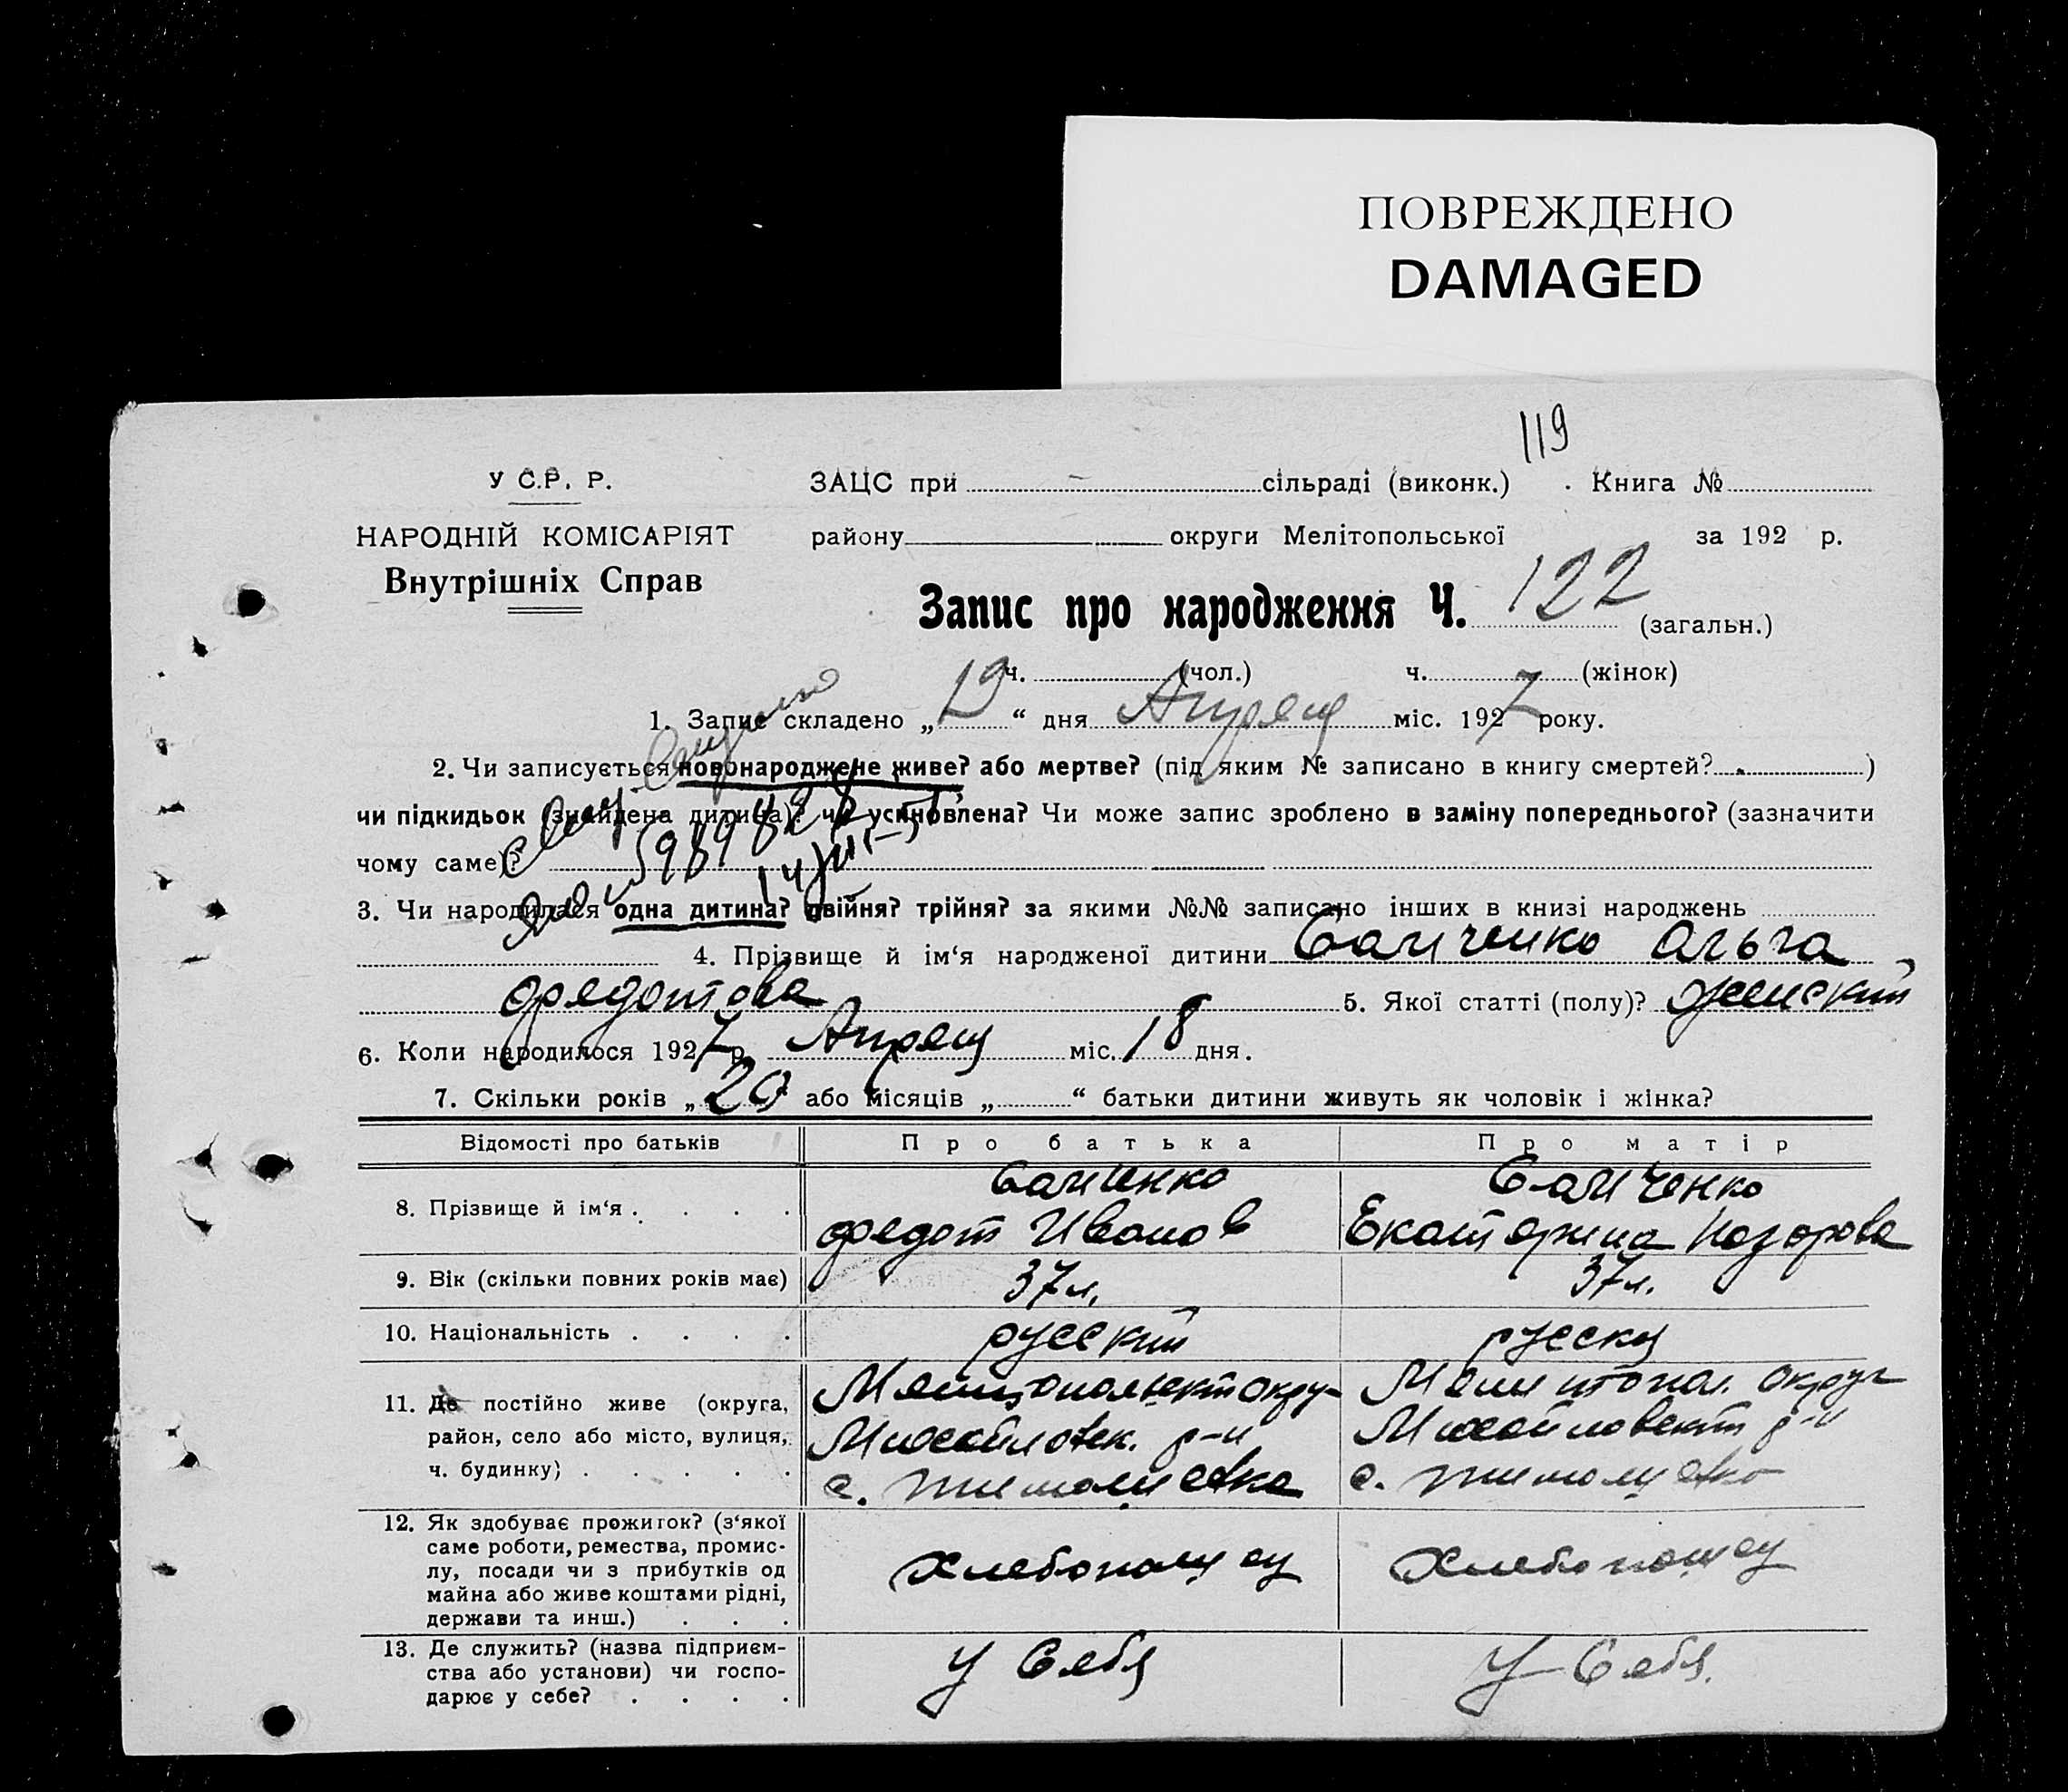 ПОВРЕЖДЕНО
DAMAGED
119
У С.Р. Р.
ЗАЦС при сільраді (виконк.) Книга №
НАРОДНІЙ КОМІСАРІЯТ
району округи Мелітопольської за 192 р.
Внутрішніх Справ
Запис про народження Ч. 122 (загальн.)
ч. (чол.) ч. (жінок)
1. Запис складено „19“ дня Апреля міс. 1927 року.
2. Чи записується новонароджене живе? або мертве? (під яким № записано в книгу смертей? )
чи підкидьок (знайдена дитина)? чи усиновлена? Чи може запис зроблено в заміну попереднього? (зазначити
чому саме)?
3. Чи народилася одна дитина? двійня? трійня? за якими №№ записано інших в книзі народжень
4. Прізвище й ім‘я народженої дитини Самченко Ольга
Федотова 5. Якої статті (полу)? женский
6. Коли народилося 1927 р. Апреля міс. 18 дня.
7. Скільки років „20“ або місяців „ “ батьки дитини живуть як чоловік і жінка?
Відомості про батьків Про батька Про матір
8. Прізвище й ім‘я Самченко Федот Иванов Самченко Екатерина Назарова
9. Вік (скільки повних років має) 37 л. 37 л.
10. Національність русский русская
11. Де постійно живе (округа, район, село або місто, вулиця, ч. будинку) Михайловск. р-н Мелитопол. округ Михайловский р-н
12. Як здобуває прожиток? (з‘якої
саме роботи, ремества, промис-
лу, посади чи з прибутків од
майна або живе коштами рідні,
держави та инш.) Хлебопашец Хлебопашец
13. Де служить? (назва підприєм-
ства або установи) чи госпо-
дарює у себе? У Себя У Себя.